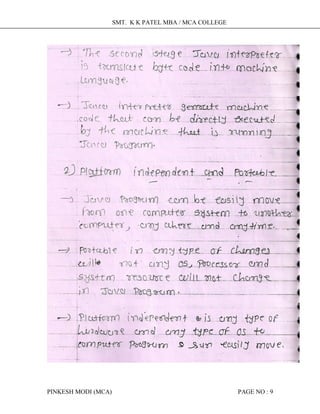 SMT. K K PATEL MBA / MCA COLLEGE
→ The second stage Java interpreter
is translate byte code into machine
Language.
→ Java interpreter generate machine
code that can be directly executed
by the machine that is running
Java Program.
2) Platform independent and Portable
→ Java Program can be easily move
from one computer system to another
computer, any where and anytime.
→ Portable in any type of changes
will not any OS, Processor and
System resource will not Change
in Java Program.
→ Platform independent is any type of
hardware and any type of OS to
computer Program run easily move.
PINKESH MODI (MCA)
PAGE NO : 9